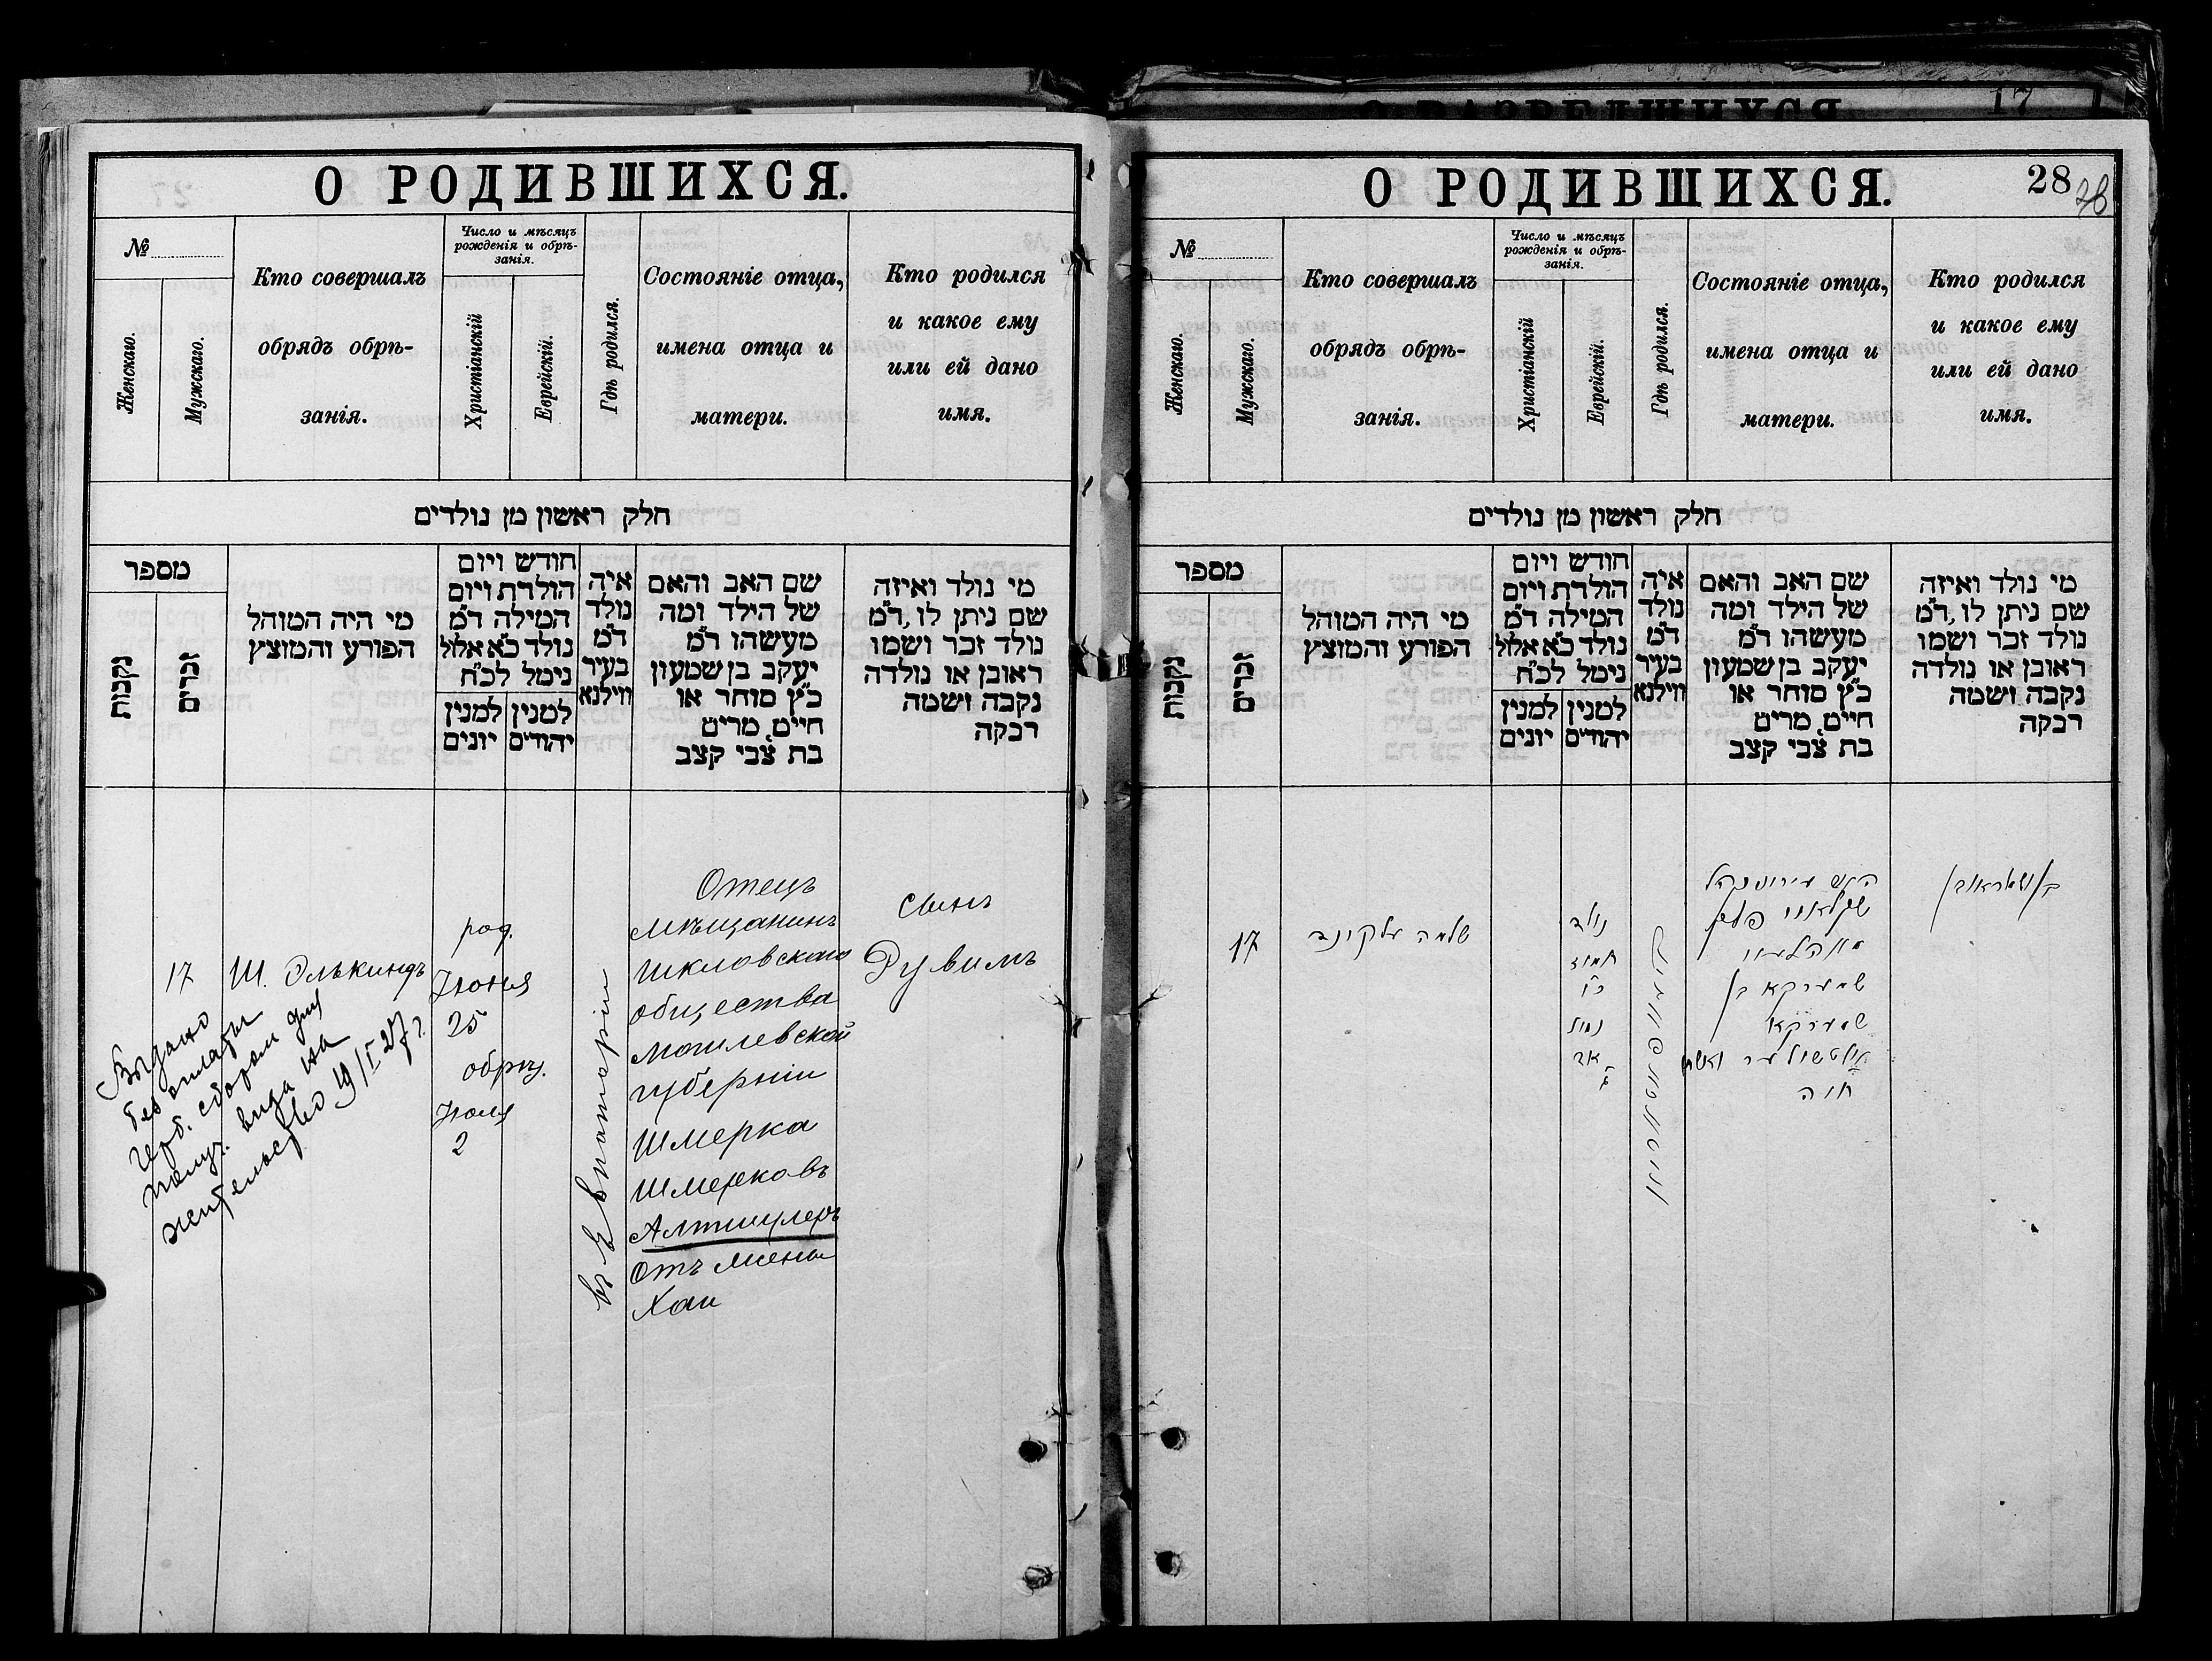 О РОДИВШИХСЯ.
№
Женскаго.
Мужскаго.
Кто совершалъ
обрядъ обрѣ-
занія.
Число и мѣсяцъ
рожденія и обрѣ-
занія.
Христіанскій
Еврейскій.
Гдѣ родился.
Состояніе отца,
имена отца и
матери.
Кто родился
и какое ему
или ей дано
имя.
חלק ראשון מן נולדים
מספר
נקבות
זכרים
מי היה המוהל
הפורע והמוצץ
חודש ויום
הולדת ויום
המילה ד״מ
נולד כ״א אלול
נימל לכ״ח
למנין יונים
למנין יהודים
איה
נולד
ד״מ
בעיר
ווילנא
שם האב והאם
של הילד ומה
מעשהו ד״מ
יעקב בן שמעון
כ״ץ סוחר או
חיים, מרים
בת צבי קצב
מי נולד ואיזה
שם ניתן לו, ד״מ
נולד זכר ושמו
ראובן או נולדה
נקבה ושמה
רבקה
17
Ш. Элькиндъ
род.
Іюня
25
обрѣз.
Іюля
2
въ Евпаторіи
Отецъ
мѣщанинъ
Шкловскаго
общества
могилевской
губерніи
Шмерка
Шмерковъ
Алтшулеръ
Отъ жены
Хаи
Сынъ
Рувимъ
Выдано
без оплаты
герб. сбором для
получ. вида на
жительство 19/I 27 г.
О РОДИВШИХСЯ.
28
28
№
Женскаго.
Мужскаго.
Кто совершалъ
обрядъ обрѣ-
занія.
Число и мѣсяцъ
рожденія и обрѣ-
занія.
Христіанскій
Еврейскій.
Гдѣ родился.
Состояніе отца,
имена отца и
матери.
Кто родился
и какое ему
или ей дано
имя.
חלק ראשון מן נולדים
מספר
נקבות
זכרים
מי היה המוהל
הפורע והמוצץ
חודש ויום
הולדת ויום
המילה ד״מ
נולד כ״א אלול
נימל לכ״ח
למנין יונים
למנין יהודים
איה
נולד
ד״מ
בעיר
ווילנא
שם האב והאם
של הילד ומה
מעשהו ד״מ
יעקב בן שמעון
כ״ץ סוחר או
חיים, מרים
בת צבי קצב
מי נולד ואיזה
שם ניתן לו, ד״מ
נולד זכר ושמו
ראובן או נולדה
נקבה ושמה
רבקה
17
שלמה עלקינד
נולד
תמוז
נמול
שמערקא בן
שמערקא
אלטשולער ואשתו
חוה
17